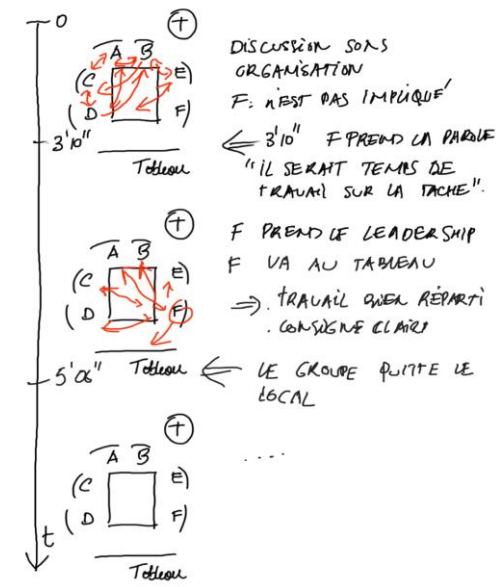 0
+
A B
(C E)
(D F)
Tableau
DISCUSSION SANS
ORGANISATION
F: N'EST PAS IMPLIQUÉ
3'10"
← 3'10" F PREND LA PAROLE
"IL SERAIT TEMPS DE
TRAVAIL SUR LA TACHE".
+
A B
(C E)
(D F)
Tableau
F PREND LE LEADERSHIP
F VA AU TABLEAU
⇒ . TRAVAIL BIEN RÉPARTI
. CONSIGNE CLAIRE
5'06"
← LE GROUPE QUITTE LE
LOCAL
+
A B
(C E)
(D F)
Tableau
....
t